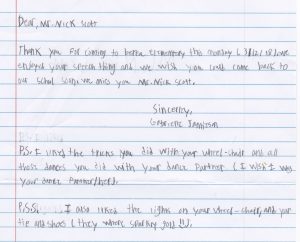 Dear, Mr. Nick Scott
Thank you for coming to berea elementary this monday (3/12/18) we
enjoyed your speech thing and we wish you could come back to
our school someday we miss you Mr. Nick Scott.
Sincerely,
Gabrielle Jamison
P.S. I liked the tricks you did with your wheel-chair and all
those dances you did with your dance partner. (I wish I was
your dance partner/her).
P.S.S. I also liked the lights on your wheel-chair, and your
tie and shoes (they where sparkly gold!!).